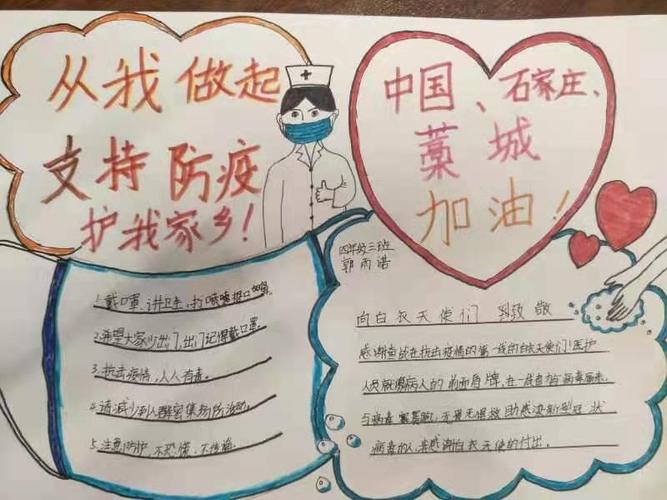 从我做起
支持防疫
护我家乡！
中国、石家庄、
藁城
加油！
四年级三班
郭雨诺
1.戴口罩,讲卫生,打喷嚏捂口鼻。
2.希望大家少出门,出门记得戴口罩。
3.抗击疫情,人人有责。
4.请减少到人群密集场所活动。
5.注意防护,不恐慌,不传谣。
向白衣天使们 致敬
感谢奋战在抗击疫情的第一线的白衣天使们!医护
人员就像病人的前面盾牌,在一线自
与病毒
病毒的人,亲感谢白衣天使的付出。